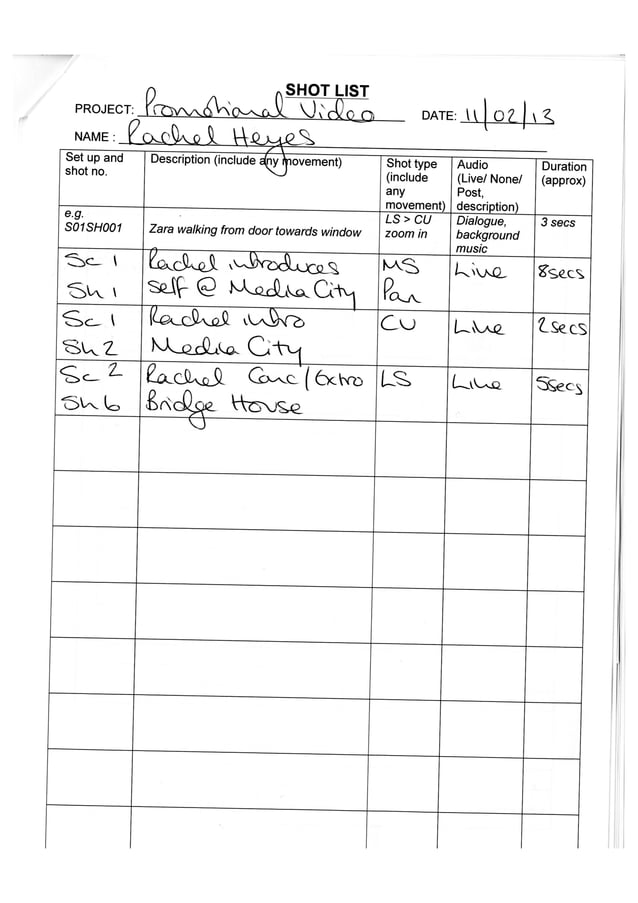 SHOT LIST
PROJECT: Promotional Video DATE: 11/02/13
NAME : Rachel Heyes
Set up and shot no. Description (include any movement) Shot type (include any movement) Audio (Live/ None/ Post, description) Duration (approx)
e.g. S01SH001 Zara walking from door towards window LS > CU zoom in Dialogue, background music 3 secs
Sc 1 Rachel introduces MS Live 8secs
Sh 1 self @ Media City Pan
Sc 1 Rachel intro CU Live 2secs
Sh 2 Media City
Sc 2 Rachel Conc/Extro LS Live 5secs
Sh 6 Bridge House